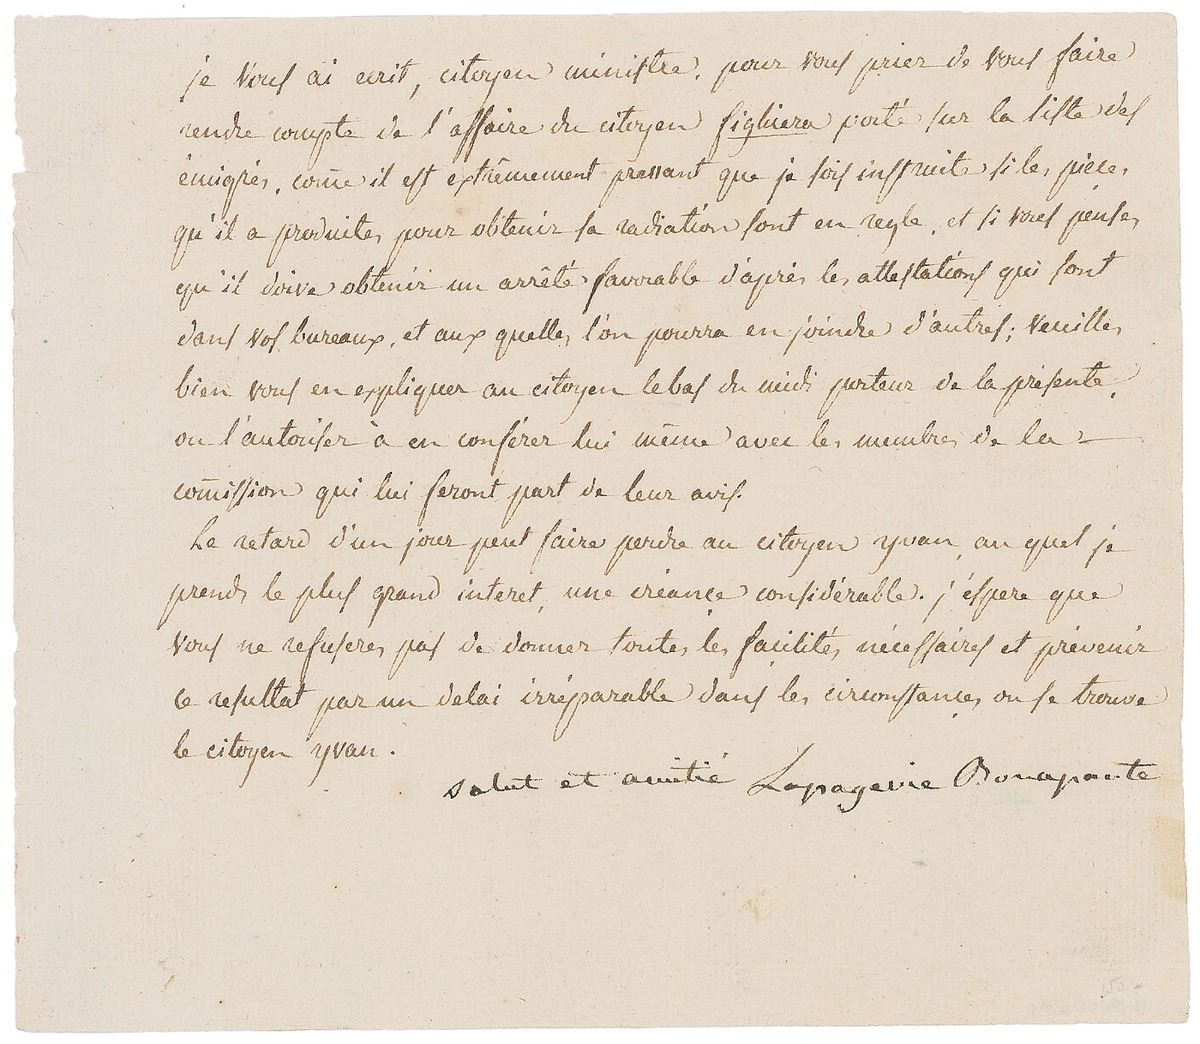 je vous ai ecrit, citoyen ministre, pour vous prier de vous faire
rendre compte de l'affaire du citoyen figluera porté sur la liste des
émigrés, come il est extrêmement pressant que je sois instruite si les pièces
qu'il a produites pour obtenir sa radiation sont en regle, et si vous penses
qu'il doive obtenir un arrêté favorable d'après les attestations qui sont
dans vos bureaux, et aux quelles l'on pourra en joindre d'autres; veuilles
bien vous en expliquer au citoyen lebas du midi porteur de la présente,
ou l'autoriser à en conférer lui même avec les membres de la
comission qui lui feront part de leur avis.
Le retard d'un jour peut faire perdre au citoyen yvan, au quel je
prends le plus grand interet, une créance considérable. j'éspere que
vous ne refuseres pas de donner toutes les façilités nécessaires et prévenir
ce resultat par un delai irréparable dans les circonstances ou se trouve
le citoyen yvan.
salut et amitié Lapagerie Bonaparte